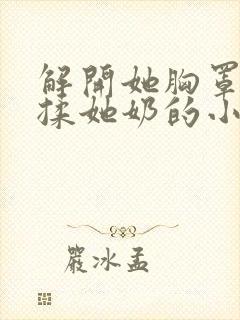 解開她胸罩
揉她奶的小
嚴冰孟